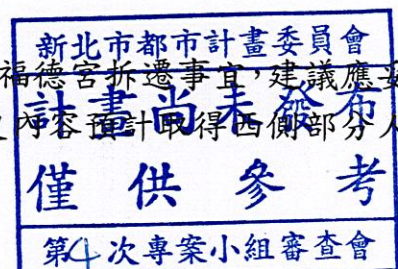 新北市都市計畫委員會
福德宮拆遷事宜，建議應妥
計畫尚未發布
內容預計取得西側部分人
僅供參考
第4次專案小組審查會